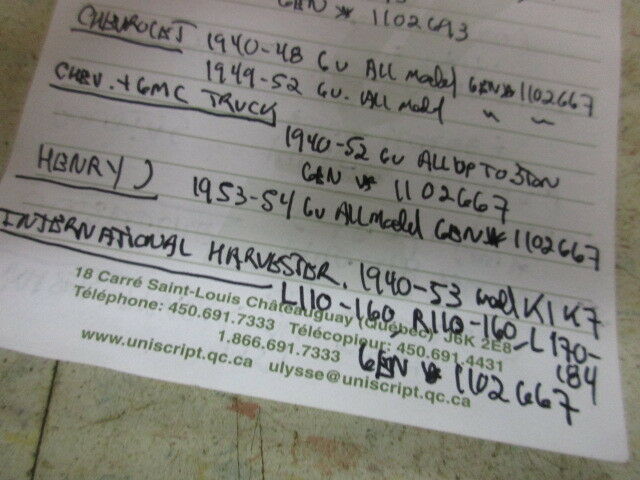 GEN # 1102693
CHEVROLET 1940-48 6V ALL Model GEN# 1102667
1949-52 6V. ALL model " "
CHEV. + GMC TRUCK
1940-52 6V ALL UP TO 3TON
GEN # 1102667
HENRY J
1953-54 6V ALL Model GEN# 1102667
INTERNATIONAL HARVESTER. 1940-53 model K1 K7
L110-160 R110-160 L170-
184
GEN # 1102667
18 Carré Saint-Louis Châteauguay (Québec) J6K 2E8
Téléphone: 450.691.7333 Télécopieur: 450.691.4431
1.866.691.7333
www.uniscript.qc.ca ulysse@uniscript.qc.ca